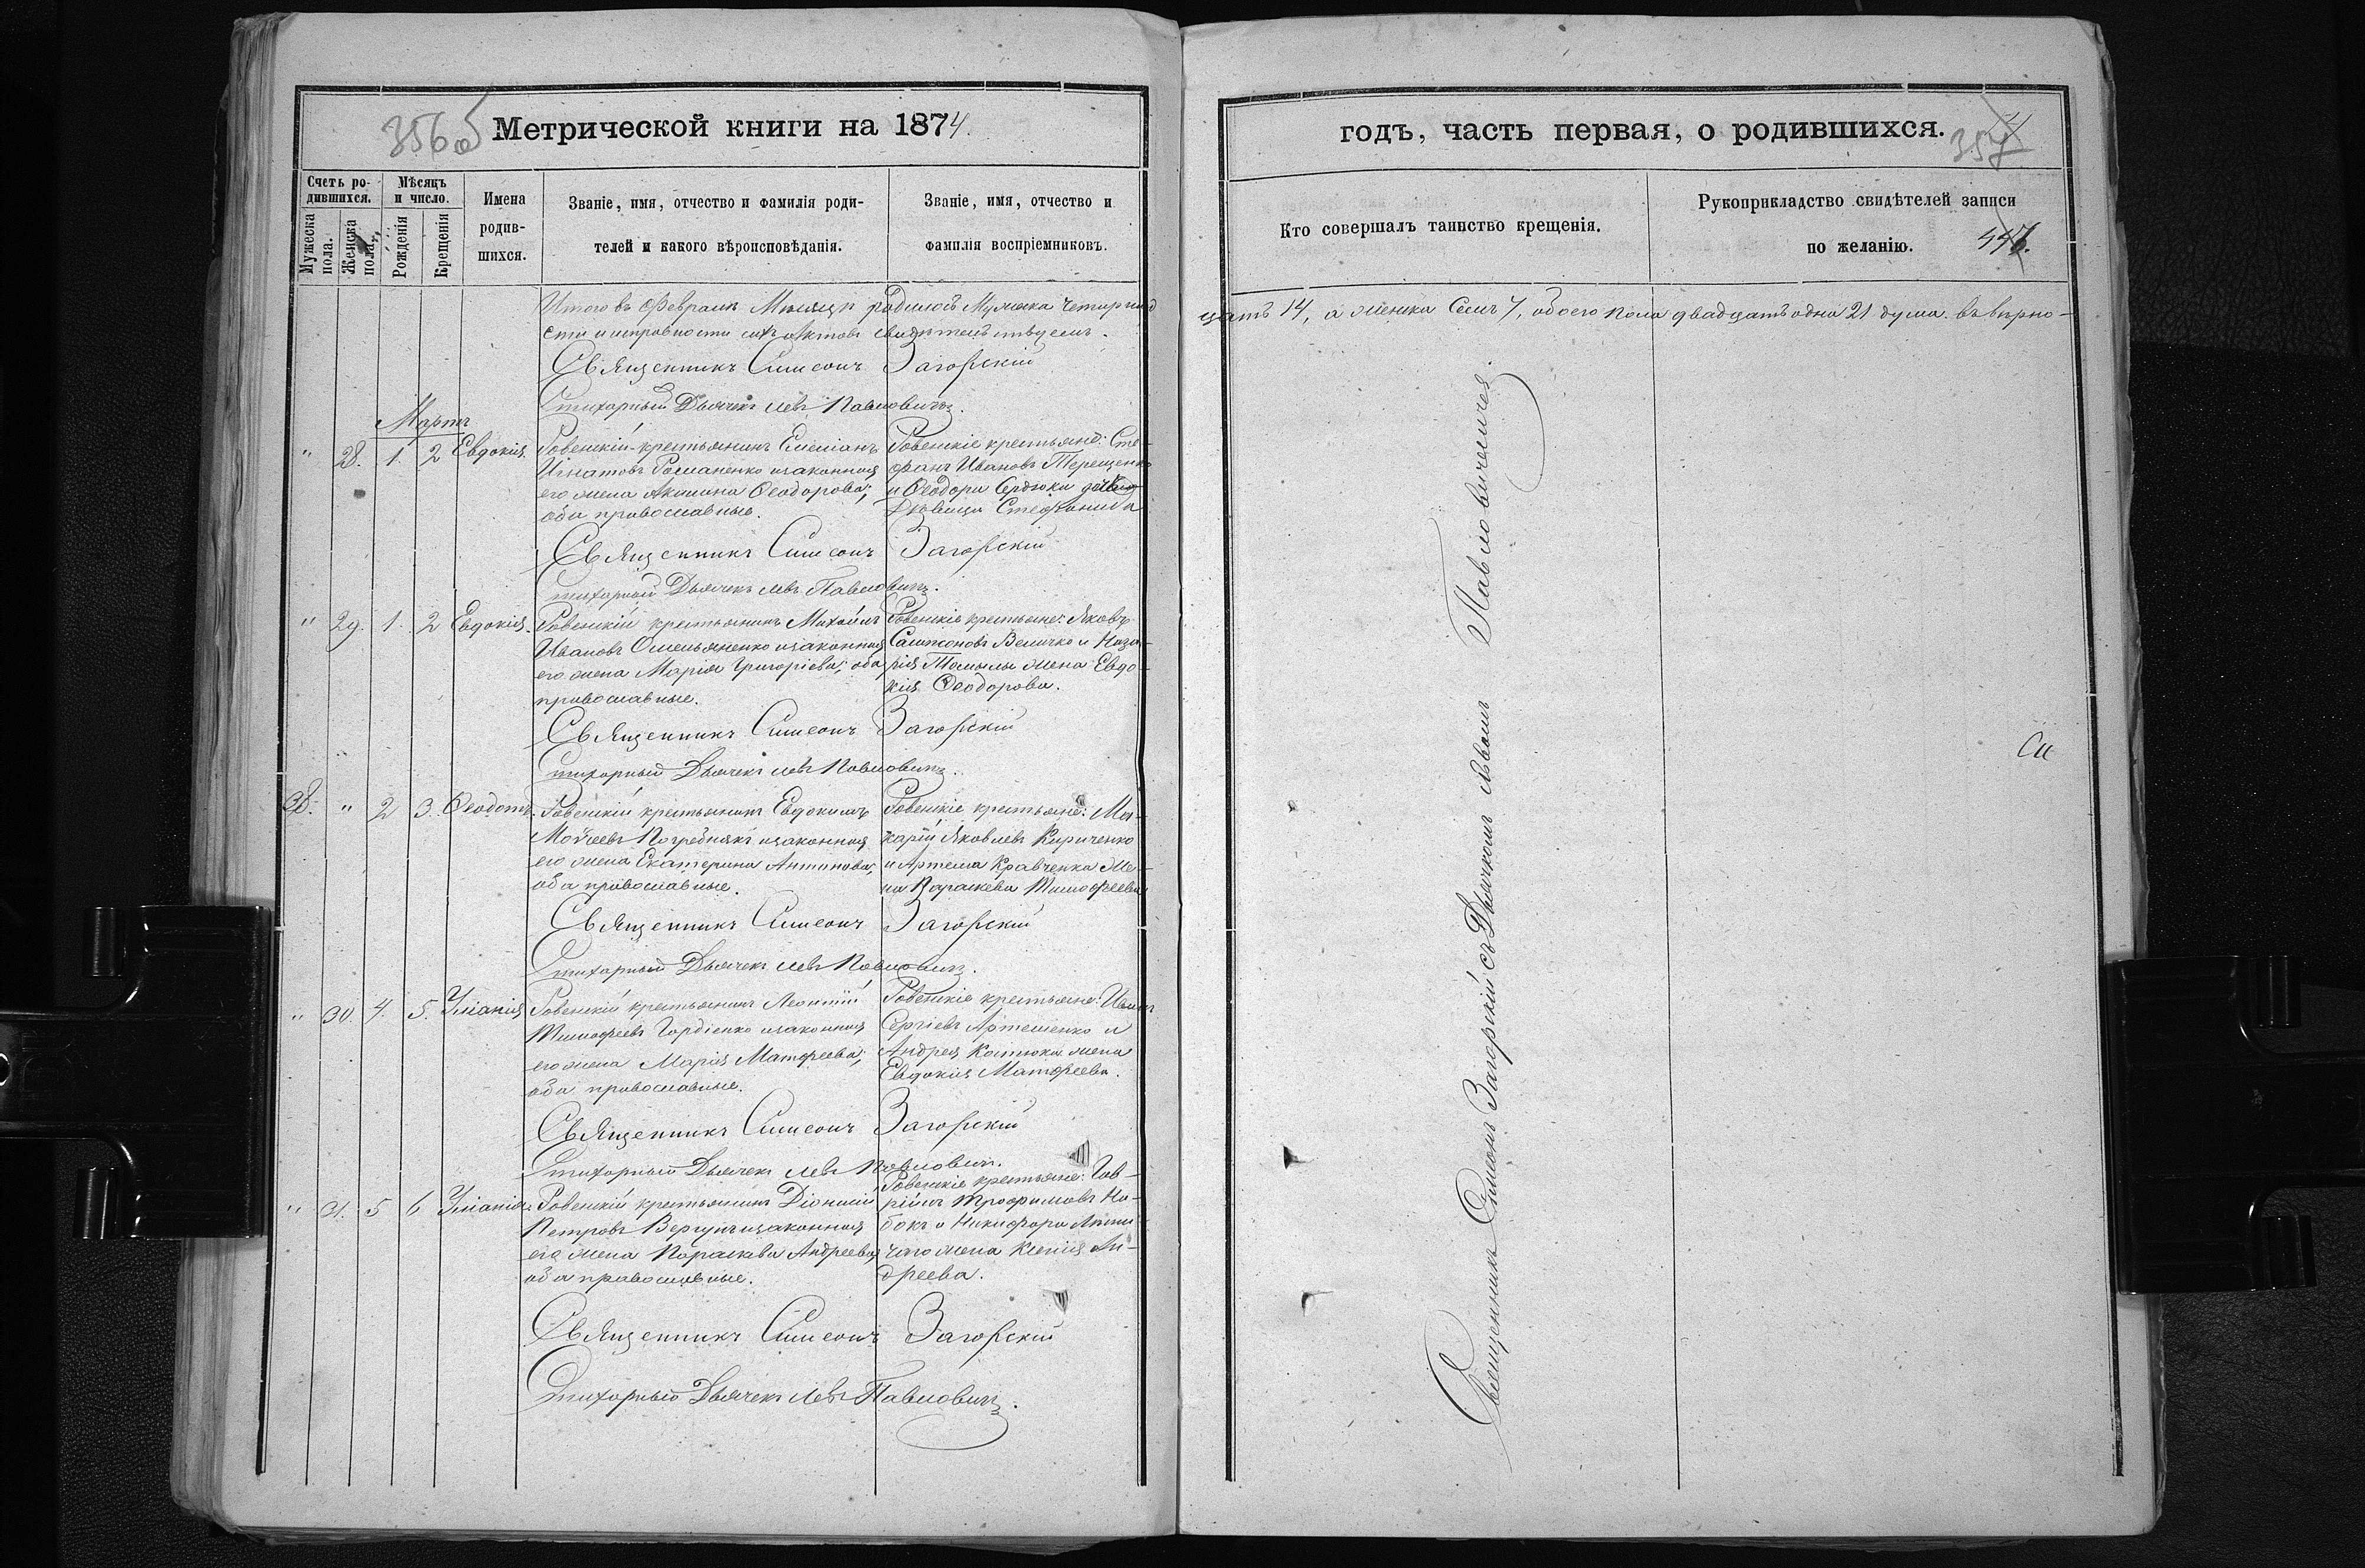 356об
Метрической книги на 1874.
Счетъ ро-
дившихся.
Мужеска пола.
Женска пола.
Мѣсяцъ
и число.
Рожденія
Крещенія
Имена
родив-
шихся.
Званіе, имя, отчество и фамилія роди-
телей и какого вѣроисповѣданія.
Званіе, имя, отчество и
фамилія воспріемниковъ.
Итого въ Февралѣ Мѣсяцѣ родилось Мужска четырнад
сти и исправности сихъ Актовъ свидѣтельствуемъ.
Священникъ Симеонъ Загорскій
Стихарный Дьячекъ Левъ Павловичъ.
Мартъ
" 28. 1. 2 Евдокія.
Ровенскій крестьянинъ Емеліанъ
Игнатовъ Романенко изаконная
его жена Акилина Ѳеодорова;
оба православные.
Ровенскіе крестьяне: Сте-
фанъ Ивановъ Терещенко
и Ѳеодора Сердюка
дѣвица Стефанида
Священникъ Симеонъ Загорскій
Стихарный Дьячекъ Левъ Павловичъ.
" 29. 1. 2 Евдокія.
Ровенскій крестьянинъ Михаилъ
Ивановъ Омельяненко изаконная
его жена Марія Григоріева; оба
православные.
Ровенскіе крестьяне: Яковъ
Самсоновъ Величко и Наза-
рія Томилы жена Евдо-
кія Ѳеодорова.
Священникъ Симеонъ Загорскій
Стихарный Дьячекъ Левъ Павловичъ.
38. " 2 3. Ѳеодотъ.
Ровенскій крестьянинъ Евдокимъ
Моѵсеевъ Погребнякъ изаконная
его жена Екатерина Антонова;
оба православные.
Ровенскіе крестьяне: Ма-
карій Яковлевъ Кириченко
и Артема Кравченка Же-
на Параскева Тимофеева
Священникъ Симеонъ Загорскій
Стихарный Дьячекъ Левъ Павловичъ.
" 30. 4. 5. Уліанія
Ровенскій крестьянинъ Леонтій
Тимофеевъ Гордіенко изаконная
его жена Марія Матфеева;
оба православные.
Ровенскіе крестьяне: Иванъ
Сергіевъ Артеменко и
Андрея Катюка жена
Евдокія Матфеева.
Священникъ Симеонъ Загорскій
Стихарный Дьячекъ Левъ Павловичъ.
" 31. 5 6 Уліанія.
Ровенскій крестьянинъ Діонисій
Петровъ Вергунъ изаконная
его жена Параскева Андреева;
оба православные.
Ровенскіе крестьяне: Гав-
ріилъ Трофимовъ На-
бокъ и Никифора
жена Ксенія Ан-
дреева.
Священникъ Симеонъ Загорскій
Стихарный Дьячекъ Левъ Павловичъ.
годъ, часть первая, о родившихся.
357
Кто совершалъ таинство крещенія.
Рукоприкладство свидѣтелей записи
по желанію.
цать 14, а женска Семь 7, обоего пола двадцать одна 21 душа. въ вѣрно-
Священникъ Симеонъ Загорскій съ Дьячкомъ Львомъ Павловичемъ.
Си